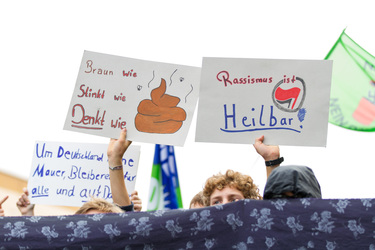 Braun wie
Stinkt wie
Denkt wie
Rassismus ist
Heilbar!
Um Deutschland
Mauer, Bleibere
alle und auf